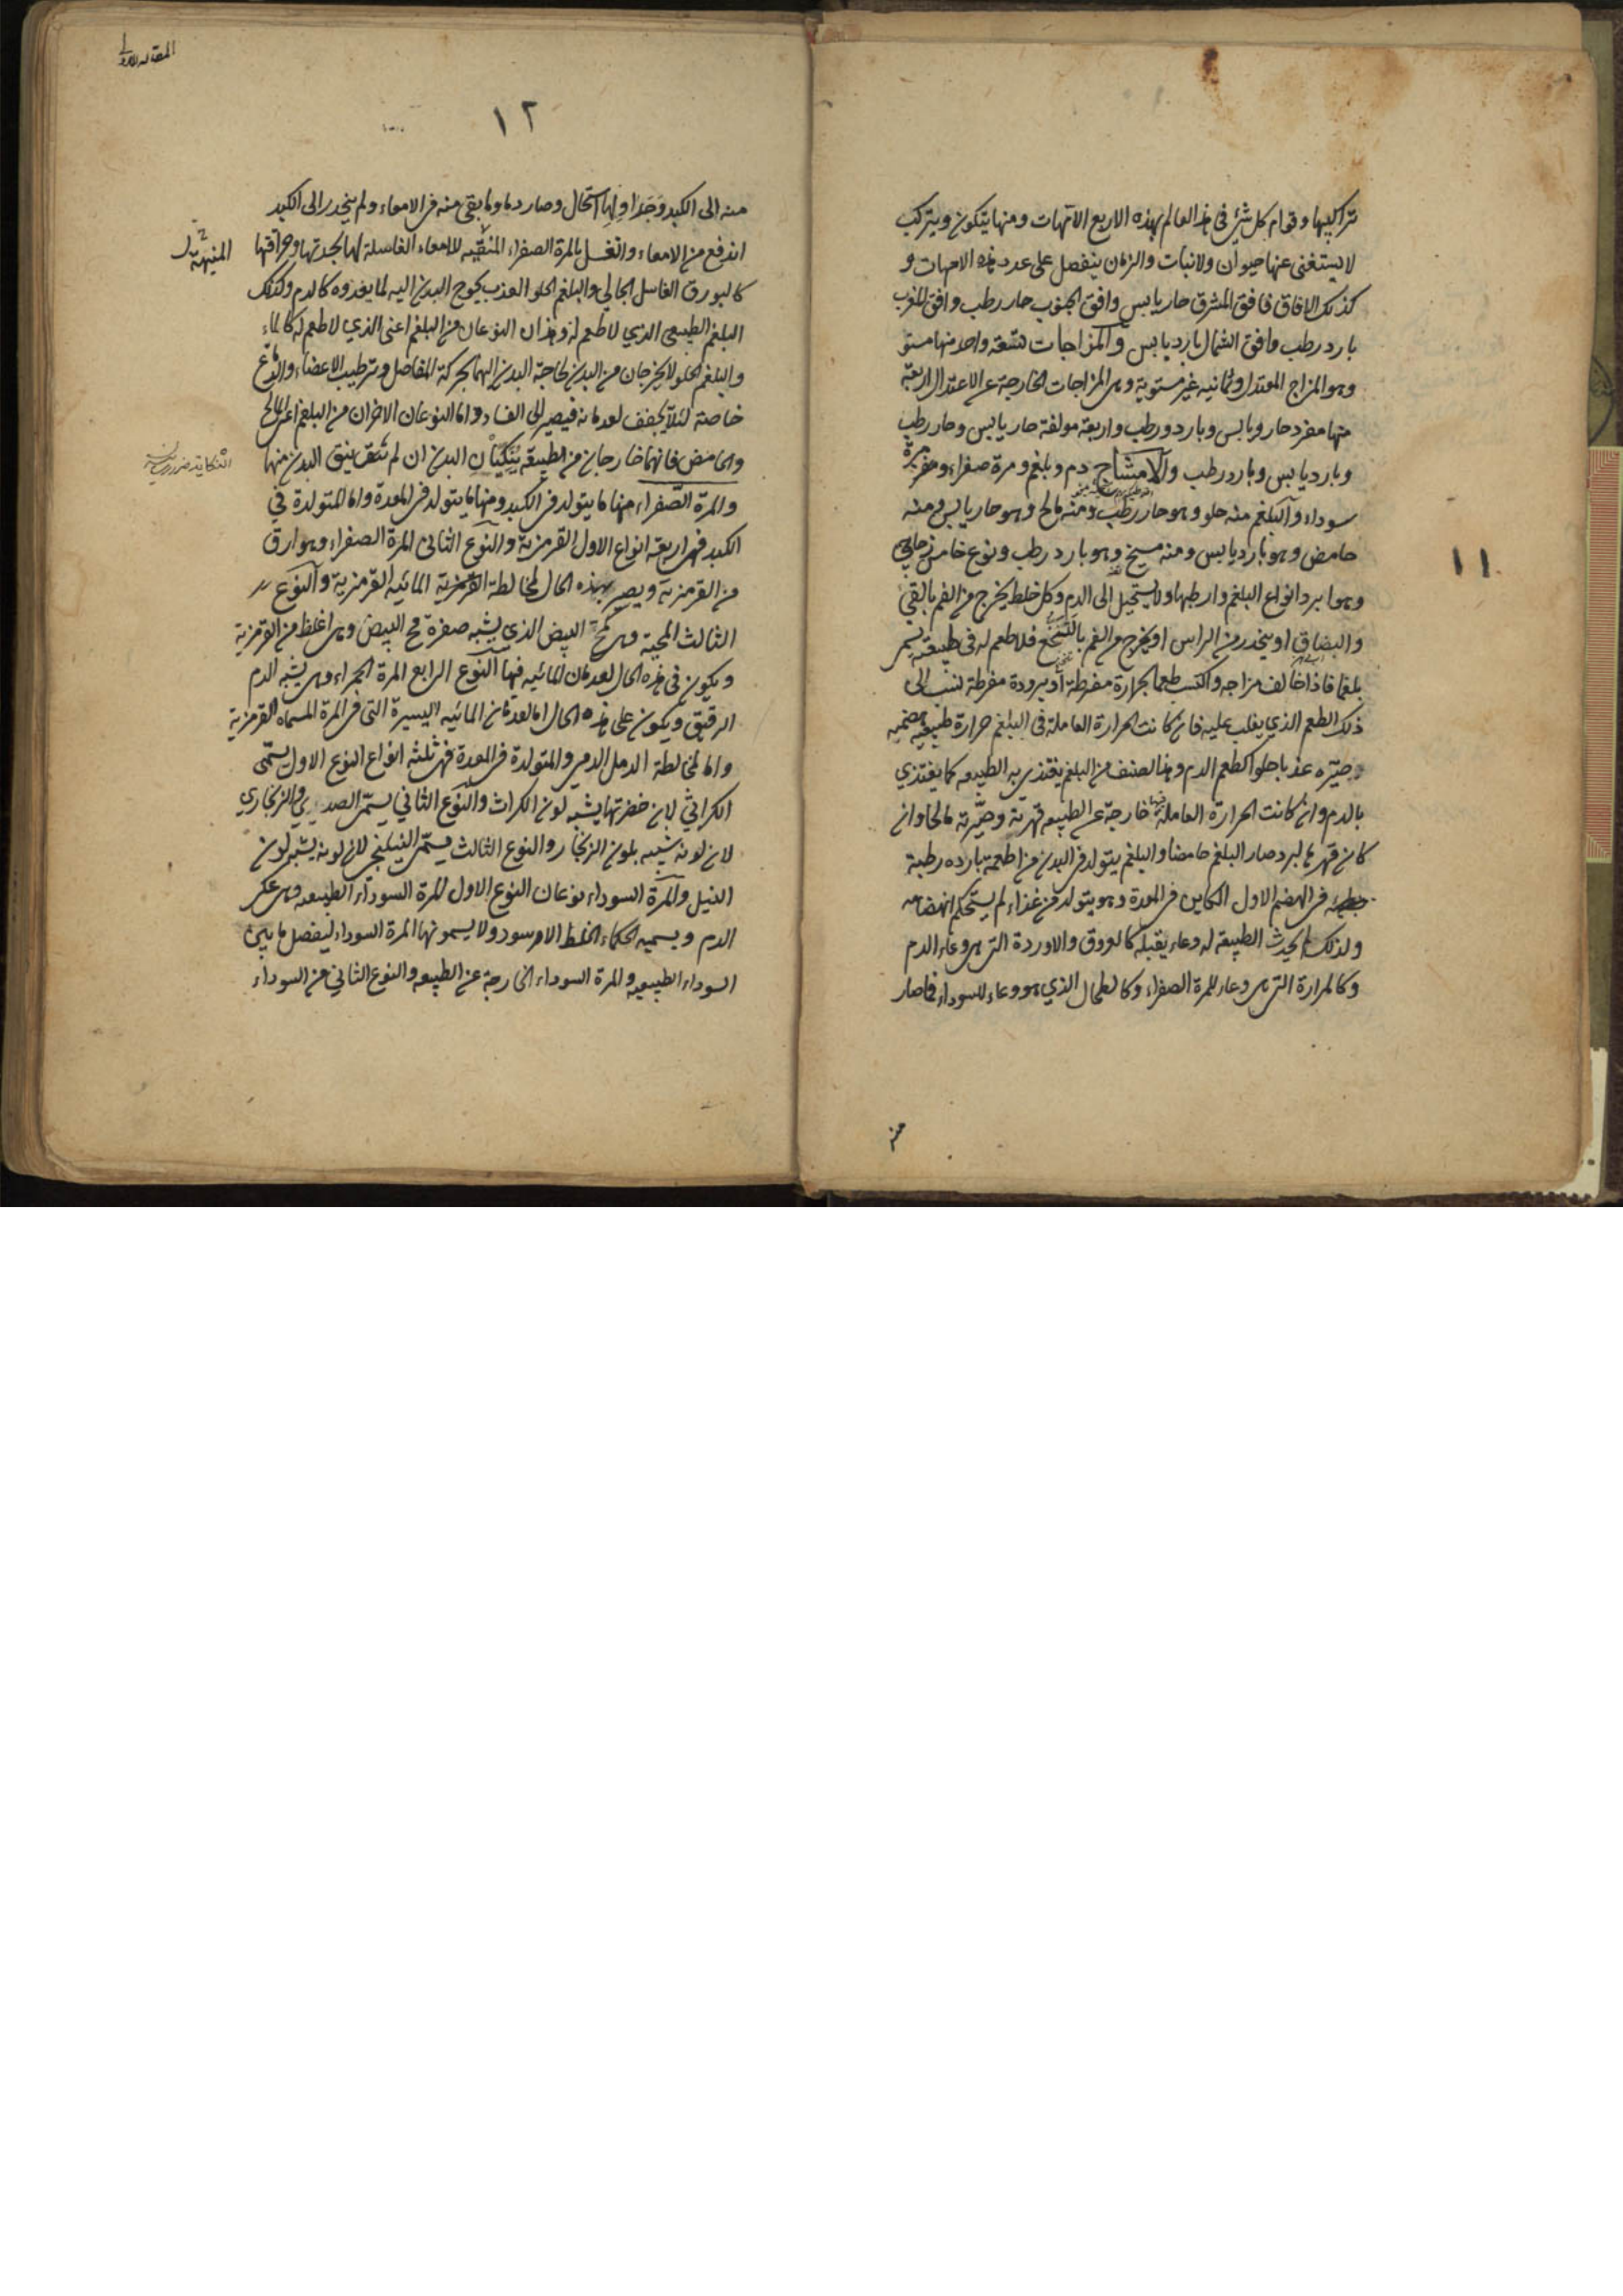 تراكيبها وقوام كل شئ في هذا العالم بهذه الاربع الامهات ومنها يتكون ويتركب
لا يستغنى عنها حيوان ولا نبات والزمان ينفصل على عدد هذه الامهات و
كذلك الافاق فافق المشرق حار يابس وافق الجنوب حار رطب وافق المغرب
بارد رطب وافق الشمال بارد يابس والمزاجات تسعة واحد منها مستو
وهو المزاج المعتدل وثمانيه غير مستوية وهى المزاجات الخارجة عن الاعتدال اربعة
منها مفرد حار ويابس وبارد ورطب واربعة مولفة حار يابس وحار رطب
وبارد يابس وبارد رطب والامشاج دم وبلغم ومرة صفراء ومرة
سوداء والبلغم منه حلو وهو حار رطب ومنه مالح وهو حار يابس ومنه
حامض وهو بارد يابس ومنه مسيخ وهو بارد رطب ونوع خامس زجاجي
وهو ابرد انواع البلغم وارطبها ولا يستحيل الى الدم وكل خلط يخرج من الفم بالقئ
والبصاق او ينحدر من الراس او يخرج من الفم بالتنخع فلا طعم له فى طبيعته يسمى
بلغما فاذا خالف مزاجه واكتسب طعما بحرارة مفرطة او ببرودة مفرطة نسب الى
ذلك الطعم الذي يغلب عليه فان كانت الحرارة العاملة فى البلغم حرارة طبيعية هضميه
صيّره عذبا حلوا كطعم الدم وهذا الصنف من البلغم يغتذي به الطبيعه كما يغتذي
بالدم وان كانت الحرارة العاملة فيها خارجة عن الطبيعه قهرته وصيّرته مالحا وان
كان قهره البرد صار البلغم حامضا والبلغم يتولد فى البدن من اطعمة بارده رطبة
فى الهضم الاول الكاين فى المعدة وهو يتولد من غذاء لم يستحكم انهضامه
ولذلك لم يحدث الطبيعة له وعاء يقبله كالعروق والاوردة التى هى وعاء الدم
وكالمرارة التى هى وعاء للمرة الصفراء وكالطحال الذي هو وعاء للسوداء فما صار
منه
١١
المقاله الاولى
١٢
منه الى الكبد وجدا ولها استحال وصار دما وما بقى منه فى الامعاء ولم ينحدر الى الكبد
اندفع من الامعاء وانغسل بالمرة الصفراء المنقيه للامعاء الغاسلة لها بحدتها وحرافتها
كالبورق الغاسل الجالي والبلغم الحلو العذب يحوج البدن اليه لما يغذوه كالدم وكذلك
البلغم الطبيعى الذي لا طعم له وهذان النوعان من البلغم اعنى الذي لا طعم له كالماء
والبلغم الحلو لا يخرجان من البدن لحاجة البدن اليهما لحركة المفاصل وترطيب الاعضاء والدماغ
خاصة لئلا يجفف لعدمانه فيصير الى الفساد واما النوعان الاخران من البلغم اعنى المالح
والحامض فانهما خارجان من الطبيعة ينكيان البدن ان لم ينق البدن منها
والمرة الصّفراء منها ما يتولد فى الكبد ومنها ما يتولد فى المعدة واما المتولدة في
الكبد فهى اربعة انواع الاول القرمزية والنوع الثانى المرة الصفراء وهو ارق
من القرمزية ويصير بهذه الحال لمخالطة القرمزية المائيه القرمزية والنوع
الثالث المحية وهى كمح البيض الذي يشبه صفرة مح البيض وهى اغلظ من القرمزية
ويكون في هذه الحال لعدمان المائيه فيها النوع الرابع المرة الحمراء وهى يشبه الدم
الرقيق ويكون على هذه الحال اما لعدمان المائيه اليسيرة التى فى المرة المسماه القرمزية
واما لمخالطة الدمل الدمي والمتولدة فى المعدة فهى ثلثه انواع النوع الاول يسمّى
الكراثي لان خضرتها يشبه لون الكراث والنوع الثاني يسمّى الصديي والزنجاري
لان لونه شبيه بلون الزنجار والنوع الثالث يسمّى النيلنجى لان لونه يشبه لون
النيل والمرة السوداء نوعان النوع الاول المرة السوداء الطبيعه وهى عكر
الدم ويسميه الحكماء الخلط الاسود ولا يسمونها المرة السوداء ليفصل ما بين
السوداء الطبيعيه والمرة السوداء الخارجة عن الطبيعه والنوع الثاني من السوداء